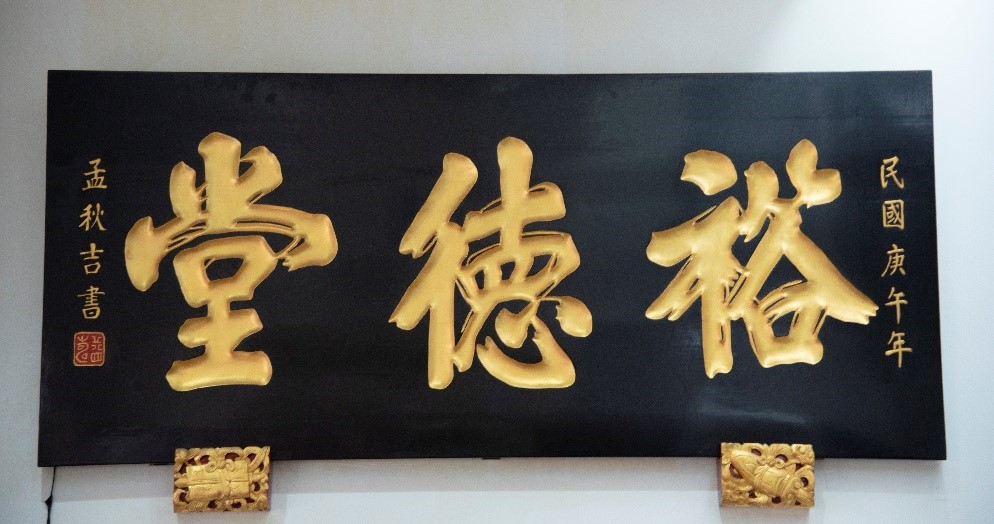 民國庚午年
裕德堂
孟秋吉書